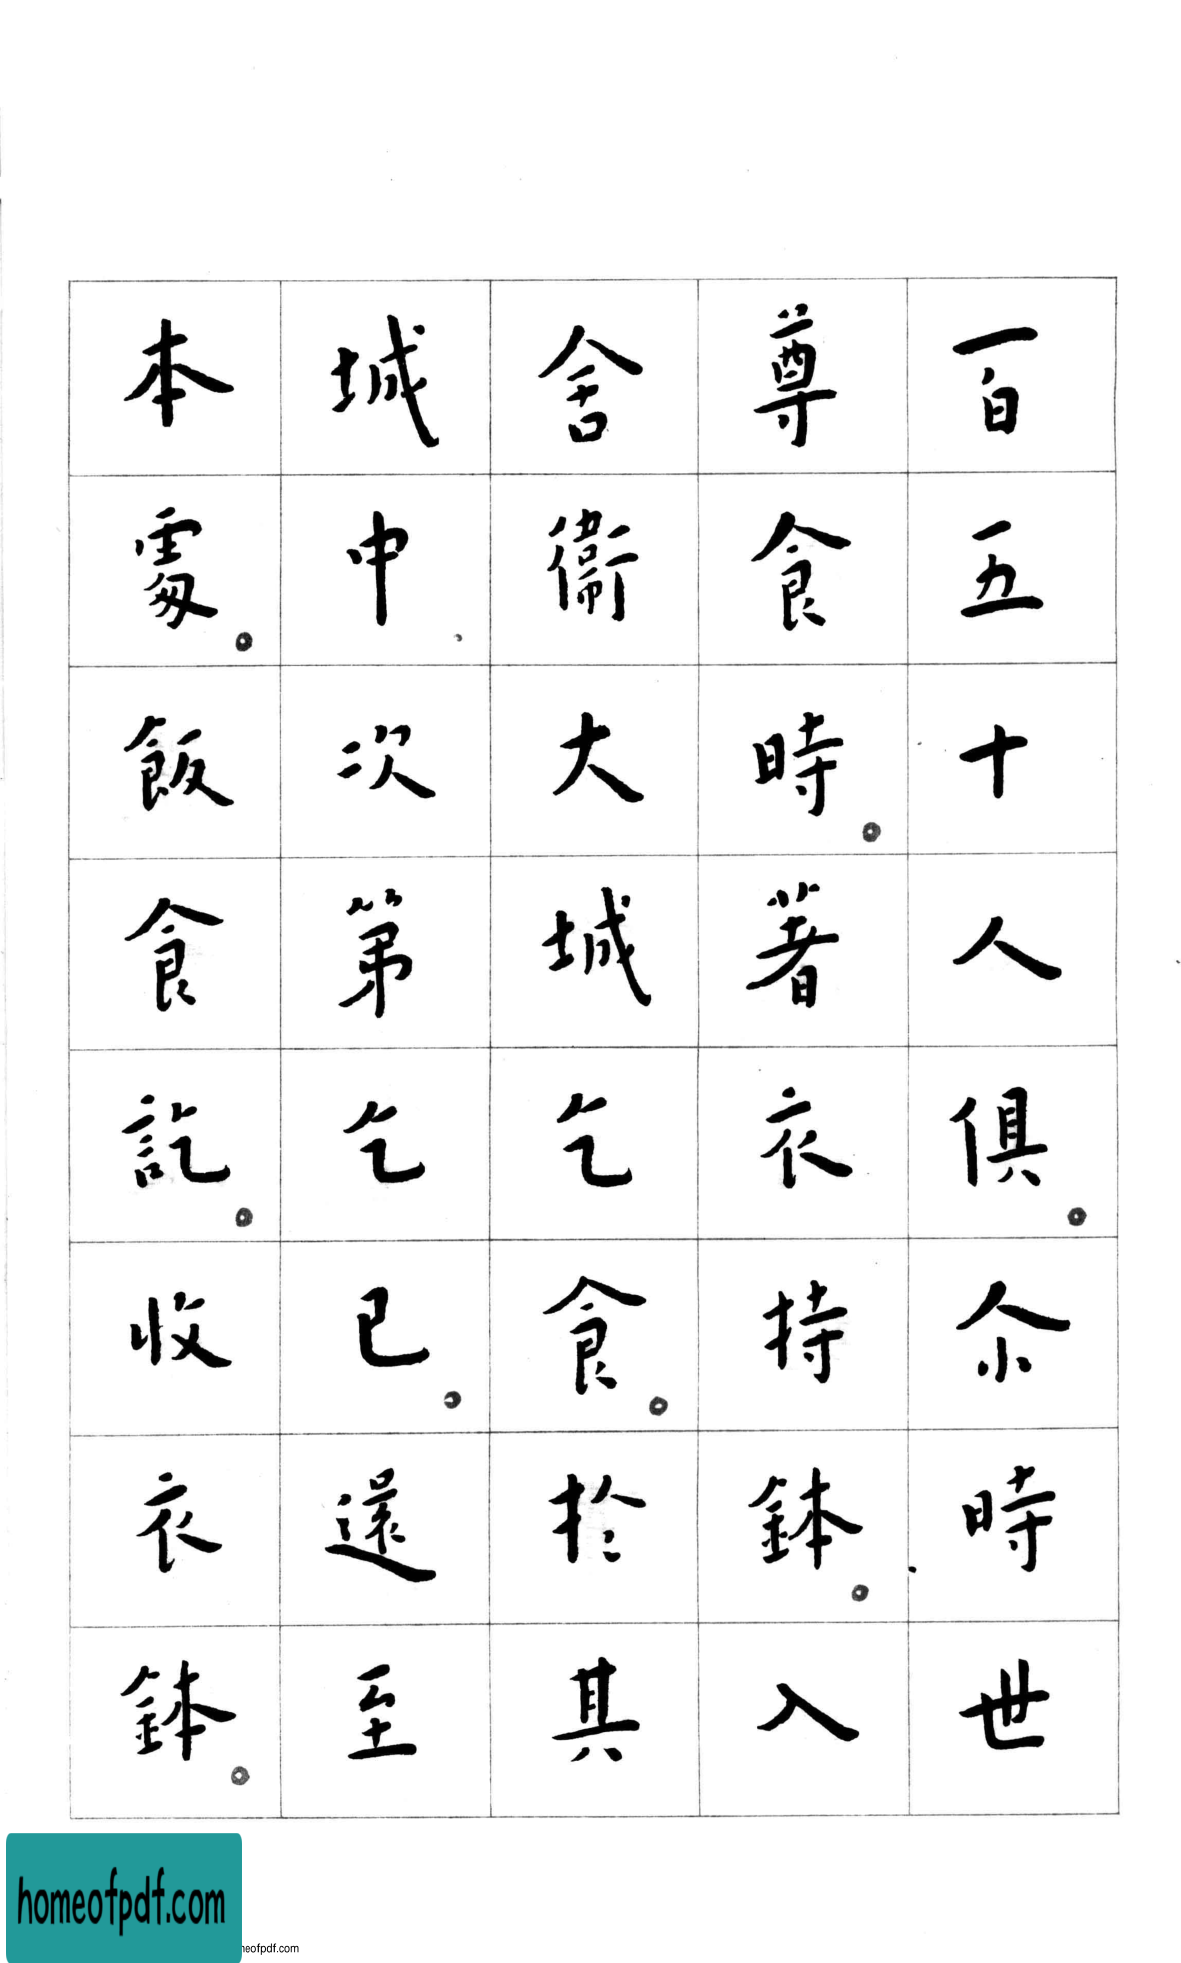 百五十人俱。尒時世
尊食時。著衣持鉢。入
舍衞大城乞食。於其
城中次第乞已。還至
本處。飯食訖。收衣鉢。
homeofpdf.com
neofpdf.com